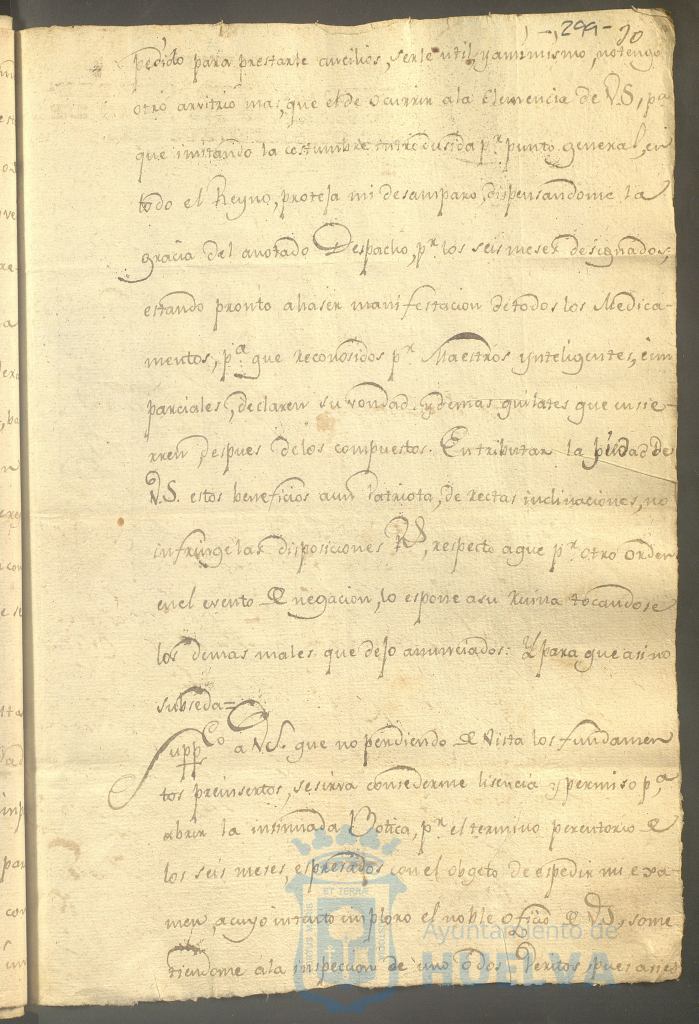 299 20
pedido para prestarle aucilios, serle util, y aun mismo, no tengo
otro arvitrio mas, que el de ocurrir a la Clemencia de V.S, pa
que imitando la costumbre introdusida pr. punto general, en
todo el Reyno, proteja mi desamparo, dispensandome la
gracia del anotado Despacho, pr. los seis meses designados,
estando pronto a haser manifestacion de todos los Medica-
mentos, pa. que reconosidos pr. Maestros ynteligentes, é im
parciales, declaren su vondad, y demas quilates que ensie-
rren, despues de los compuestos. En tributar la piedad de
V.S. estos beneficios a un Patriota, de rectas inclinaciones, no
infringe las disposiciones Rs, respecto a que pr. otro orden
en el evento de negacion, lo espone a su Ruina tocandose
los demas males que dejo anunciados: Y para que asi no
subseda=
Suppco. a V.S. que no perdiendo de vista los fundamen
tos preinsertos, se sirva consederme lisencia y permiso pa,
abrir la insinuada Botica, pr. el termino perentorio de
los seis meses, espresados con el obgeto de espedir mi exa-
men, a cuyo intento imploro el noble oficio de V.S, some
tiendome á la inspeccion de uno ó dos Peritos, pues
Ayuntamiento de
HUELVA